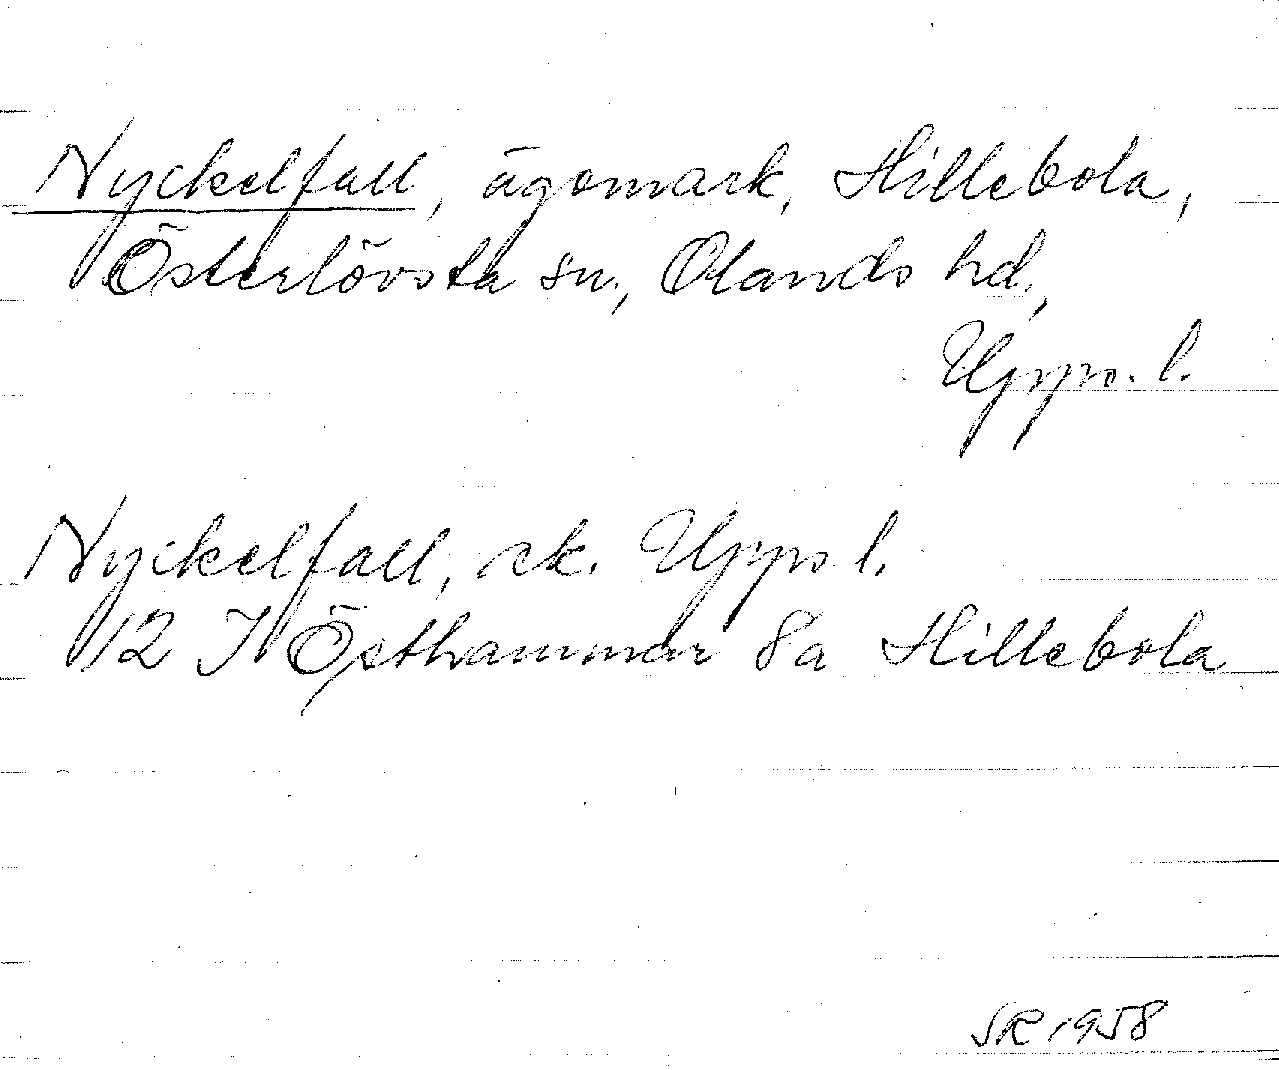 Nyckelfall, ägomark, Hillebola,
Österlövsta sn., Olands hd,
Upps. l.
Nyckelfall, ek. Upps l.
12 I Östhammar 8a Hillebola
SR 1958